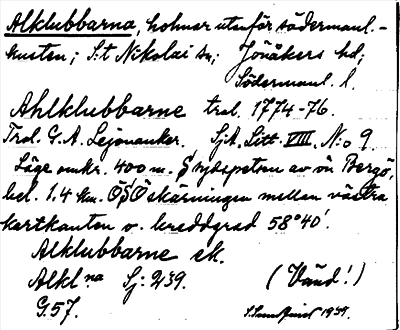 Alklubbarna, holmar utanför södermanl.-
kusten; S:t Nikolai sn; Jönåkers hd;
Södermanl. l.
Ahlklubbarne trol. 1774-76.
Trol. G.A. Lejonanker. SjA. Litt. VIII, N:o 9.
Läge omkr. 400 m. S sydspetsen av ön Bergö,
bel. 1.4 km. ÖSÖ skärningen mellan västra
kartkanten o. breddgrad 58°40'.
Alklubbarne sk.
Alkl:na Sj: 239. (Vänd!)
G.57. 1939.